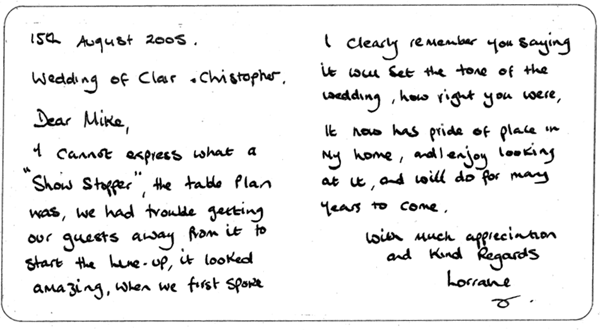 15th August 2005.
Wedding of Clair & Christopher.
Dear Mike,
I cannot express what a
"Show Stopper", the table plan
was, we had trouble getting
our guests away from it to
start the line-up, it looked
amazing, when we first spoke
I clearly remember you saying
it will set the tone of the
wedding, how right you were,
It now has pride of place in
my home, and I enjoy looking
at it, and will do for many
years to come.
With much appreciation
and Kind Regards
Lorraine